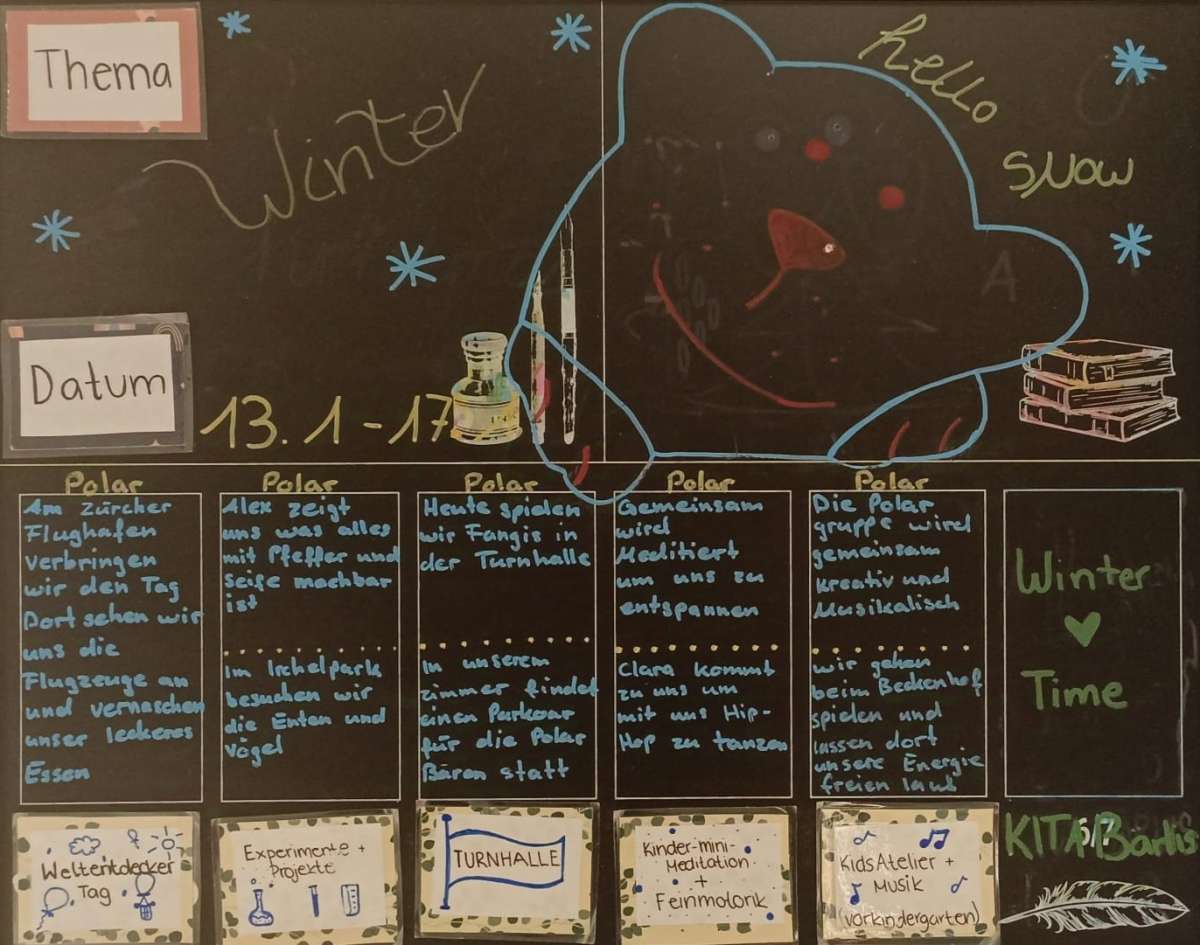 Thema
Winter
hello
snow
Datum
13.1-17.
Polar
Am zürcher
Flughafen
verbringen
wir den Tag
Dort sehen wir
uns die
Flugzeuge an
und vernaschen
unser leckeres
Essen
Polar
Alex zeigt
uns was alles
mit Pfeffer und
seife machbar
ist
Im Irchelpark
besuchen wir
die Enten und
Vögel
Polar
Heute spielen
wir Fangis in
der Turnhalle
In unserem
zimmer findet
einen Parkoar
für die Polar
Bären statt
Polar
Gemeinsam
wird
Meditiert
um uns zu
entspannen
Clara kommt
zu uns um
mit uns Hip-
Hop zu tanzen
Polar
Die Polar
gruppe wird
gemeinsam
kreativ und
Musikalisch
wir gehen
beim Beckenhof
spielen und
lassen dort
unsere Energie
freien lauf
Winter
Time
Weltentdecker
Tag
Experimente +
Projekte
TURNHALLE
Kinder-mini-
Meditation
+
Feinmotorik
KidsAtelier +
Musik
(vorkindergarten)
KITA Bärlis